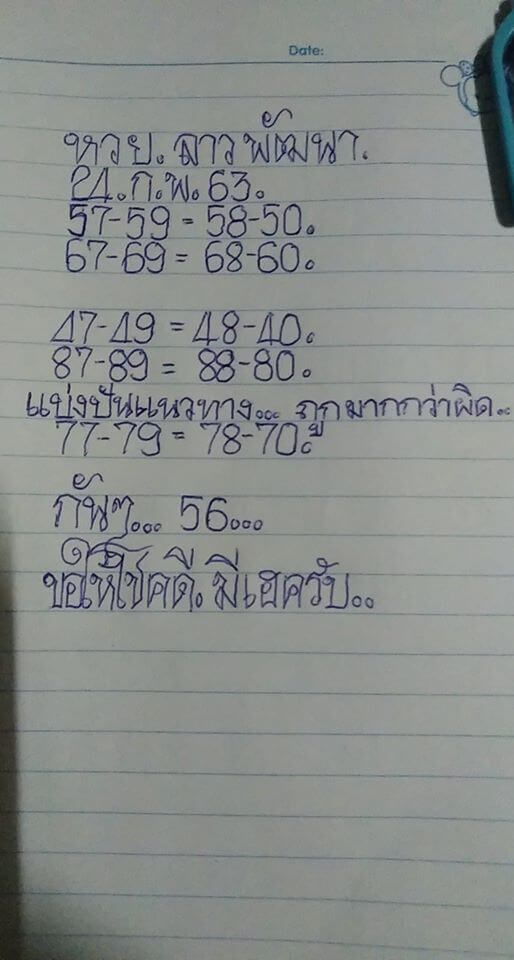 Date:
หวย. ลาวพัฒนา.
24. ก.พ. 63.
57-59 = 58-50.
67-69 = 68-60.
47-49 = 48-40.
87-89 = 88-80.
แบ่งปันแนวทาง... ถูกมากกว่าผิด..
77-79 = 78-70.
กันๆ... 56...
ขอให้โชคดี. มีเฮครับ..